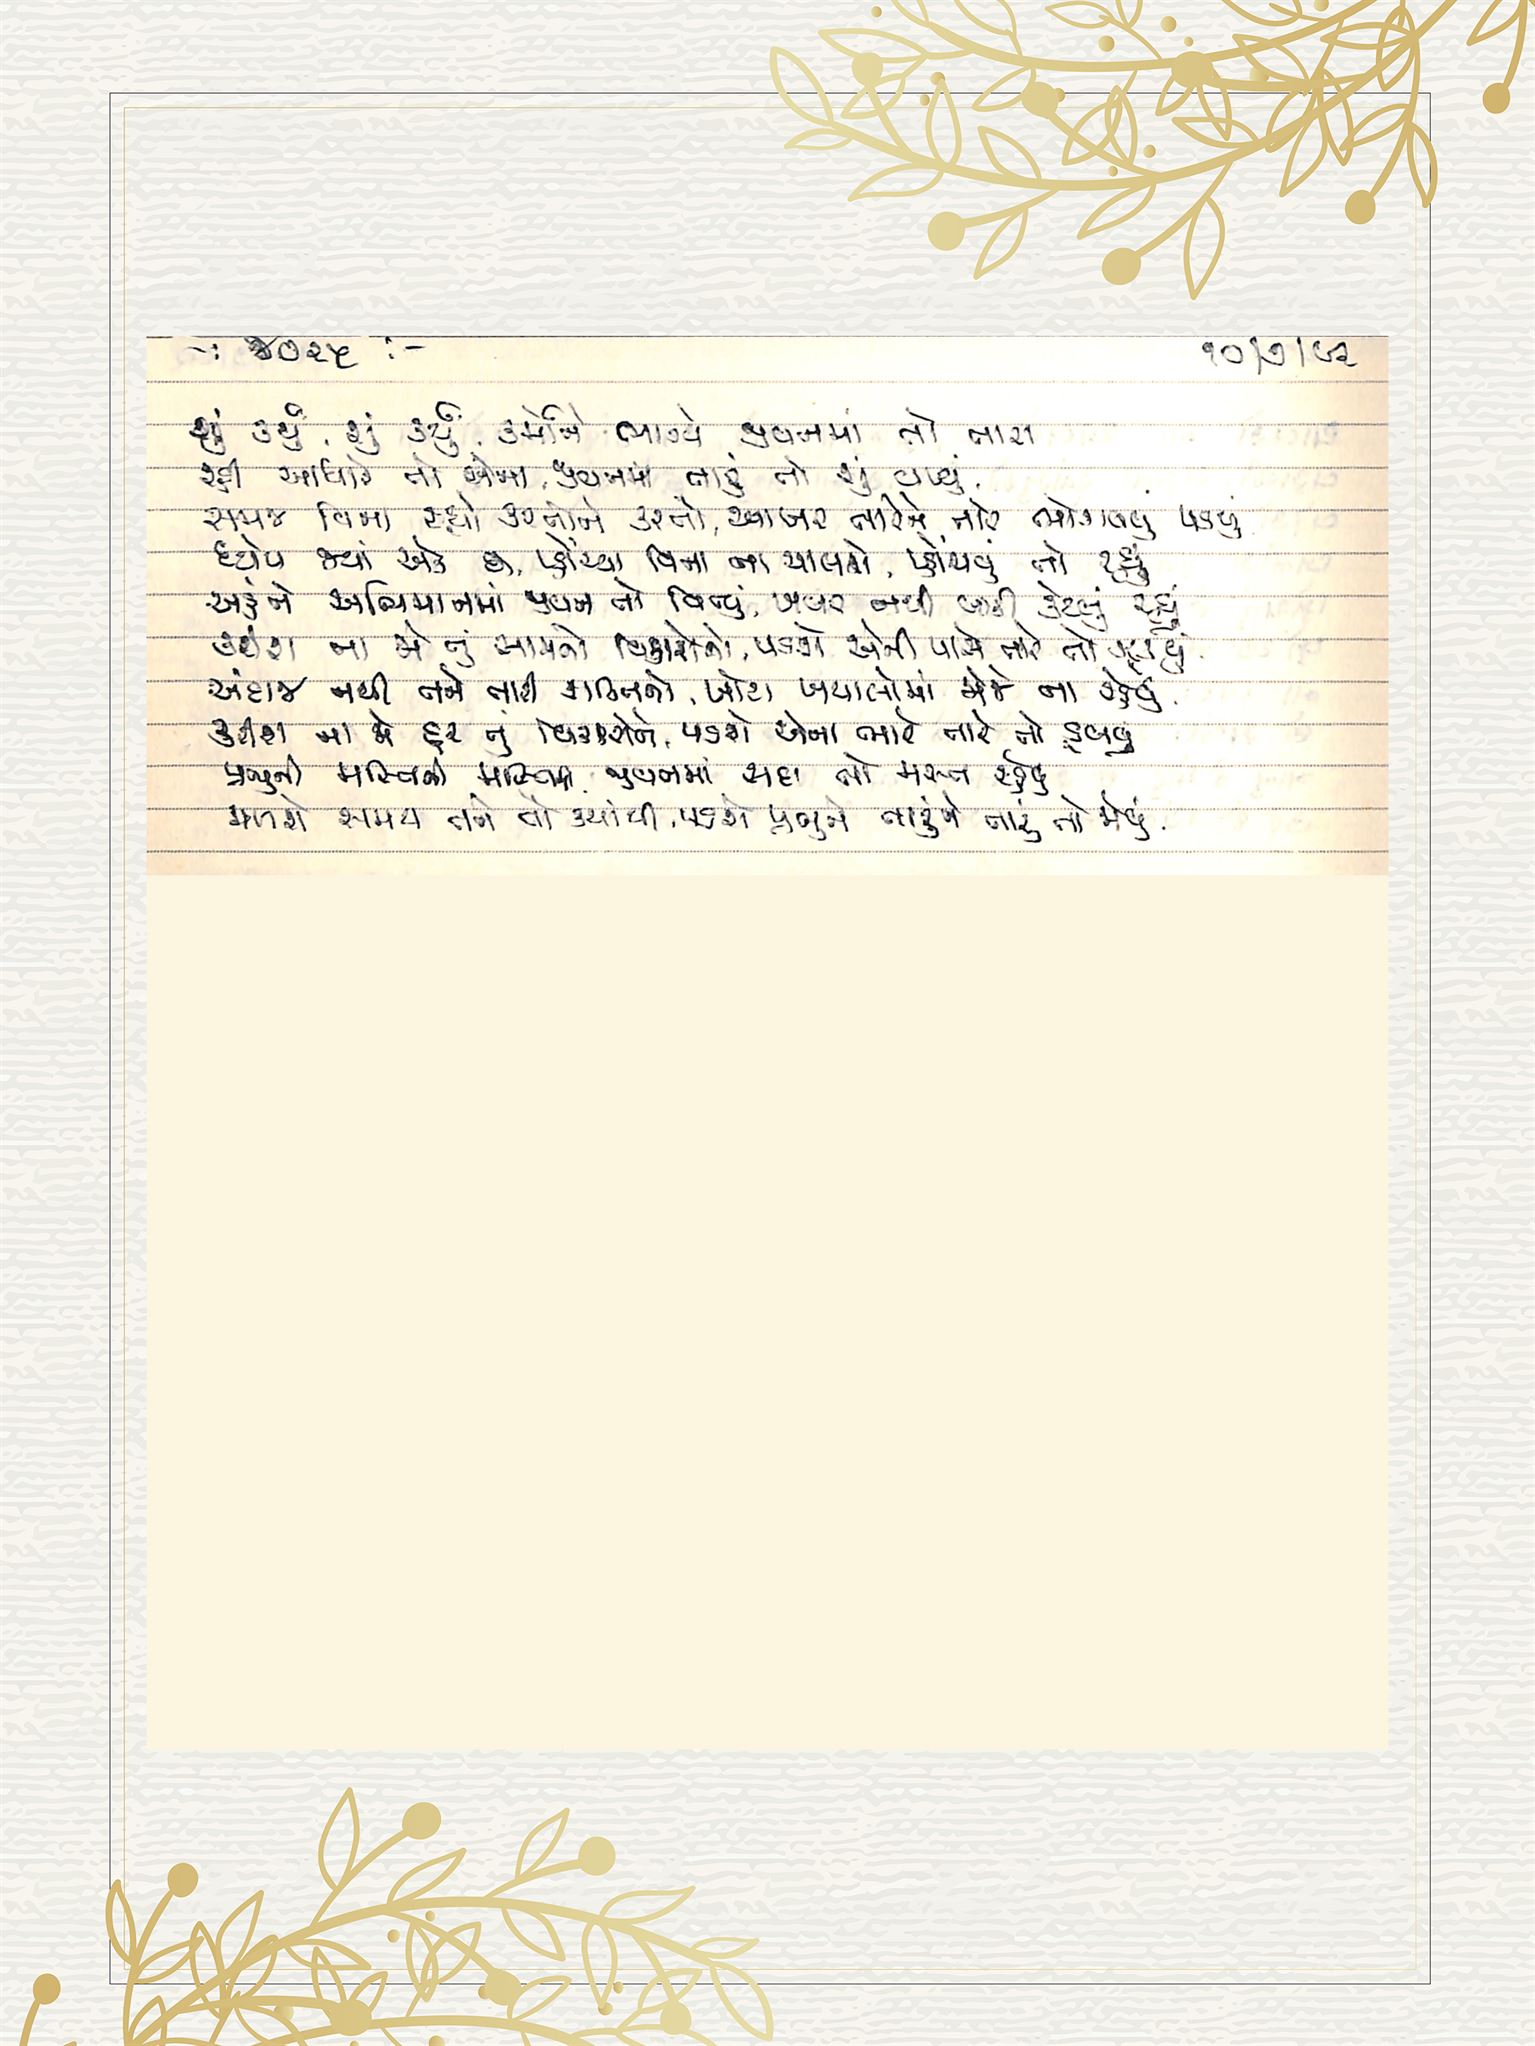 -: ૪૦૨૫ :- ૧૦/૭/૯૨
શું કર્યું, શું કર્યું, કર્મોને ભાગ્યે જીવનમાં તો તારા
રહી આધારે તો એના, જીવનમાં તારું તો શું વળ્યું.
સમજ વિના રહ્યો કરતોને કરતો, આખર તારેને તારે ભોગવવું પડયું
ધ્યેય જ્યાં એક છે, પ્હોંચ્યા વિના ના ચાલશે, પ્હોંચવું તો રહ્યું
અહંને અભિમાનમાં જીવન તો વિત્યું, ખબર નથી બાકી કેટલું રહ્યું
કરીશ ના જો તું સામનો વિકારોનો, પડશે એની પાસે તારે તો ઝૂકવું.
અંદાજ નથી તને તારી શક્તિનો, ખોટા ખયાલોમાં એને ના રહેવું.
કરીશ ના જો દૂર તું વિકારોને, પડશે એના ભારે તારે તો ડૂબવું
પ્રભુની ભક્તિની મસ્તિમાં, જીવનમાં સદા તો મસ્ત રહેવું
મળશે સમય તને તો ક્યાંથી, પડશે પ્રભુને તારુંને તારું તો દેવું.